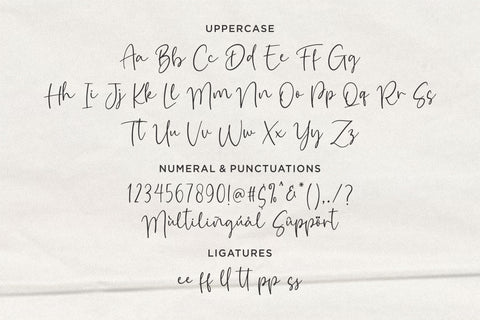 UPPERCASE
Aa Bb Cc Dd Ee Ff Gg
Hh Ii Jj Kk Ll Mm Nn Oo Pp Qq Rr Ss
Tt Uu Vv Ww Xx Yy Zz
NUMERAL & PUNCTUATIONS
1234567890!@#$%^&*(),./?
Mùltilïñgúâl Sûppört
LIGATURES
ee ff ll tt pp ss